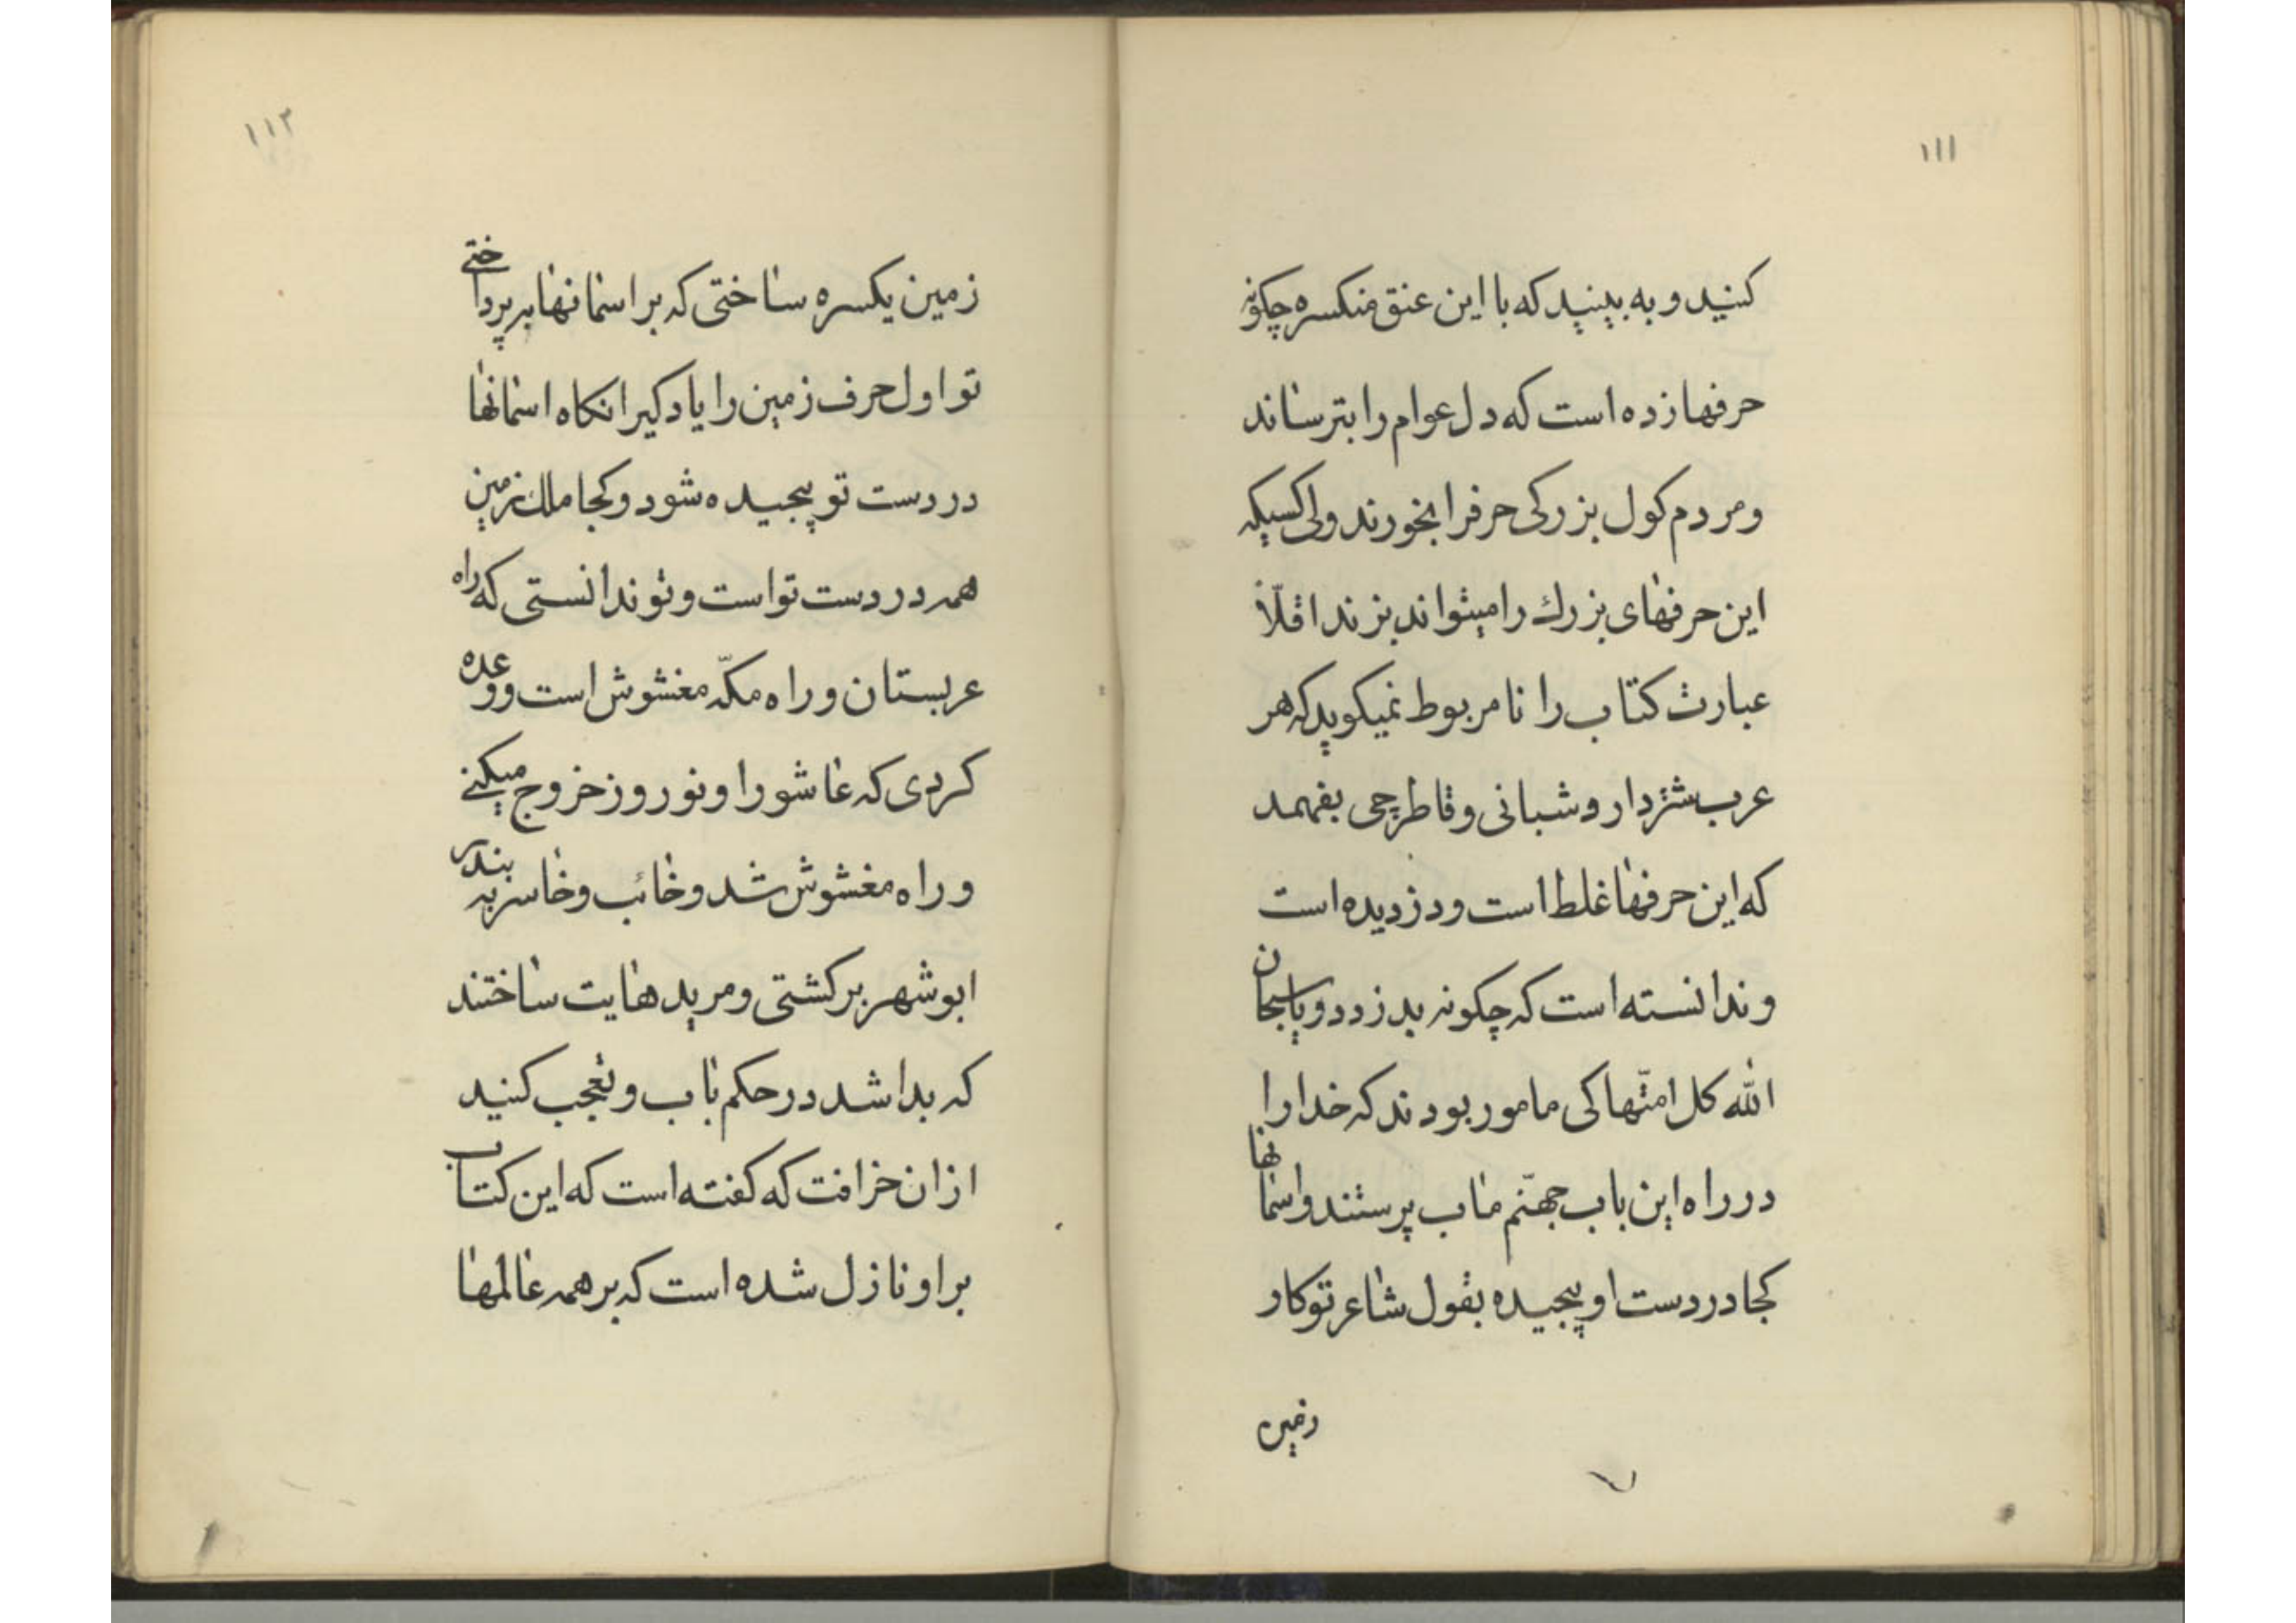 ۱۱۱
کنید و به بینید که با این عنق منکسره چکونه
حرفها زده است که دل عوام را بترساند
و مردم کول بزرکی حرفرا بخورند ولی کسیکه
این حرفهای بزرك را میتواند بزند اقلّاً
عبارت کتاب را نامربوط نمیکوید که هر
عرب شتردار و شبانی و قاطرچی بفهمد
که این حرفها غلط است و دزدیده است
و ندانسته است که چکونه بدزدد و یا سبحان
الله کل امتّها کی مامور بودند که خدا را
در راه این باب جهنّم ماب پرستند و اسمانها
کجا در دست او پیچیده بقول شاعر تو کار
زمین
۱۱۲
زمین یکسره ساختی که بر اسمانها به پرداختی
تو اول حرف زمین را یاد کیر انکاه اسمانها
در دست تو پیچیده شود و کجا ملك زمین
همه در دست تو است و تو ندانستی که راه
عربستان و راه مکّه مغشوش است و وعده
کردی که عاشورا و نوروز خروج میکنی
و راه مغشوش شد و خائب و خاسر به بندر
ابوشهر برکشتی و مریدهایت ساختند
که بدا شد در حکم باب و تعجب کنید
از ان خرافت که کفته است که این کتاب
بر او نازل شده است که بر همه عالمها